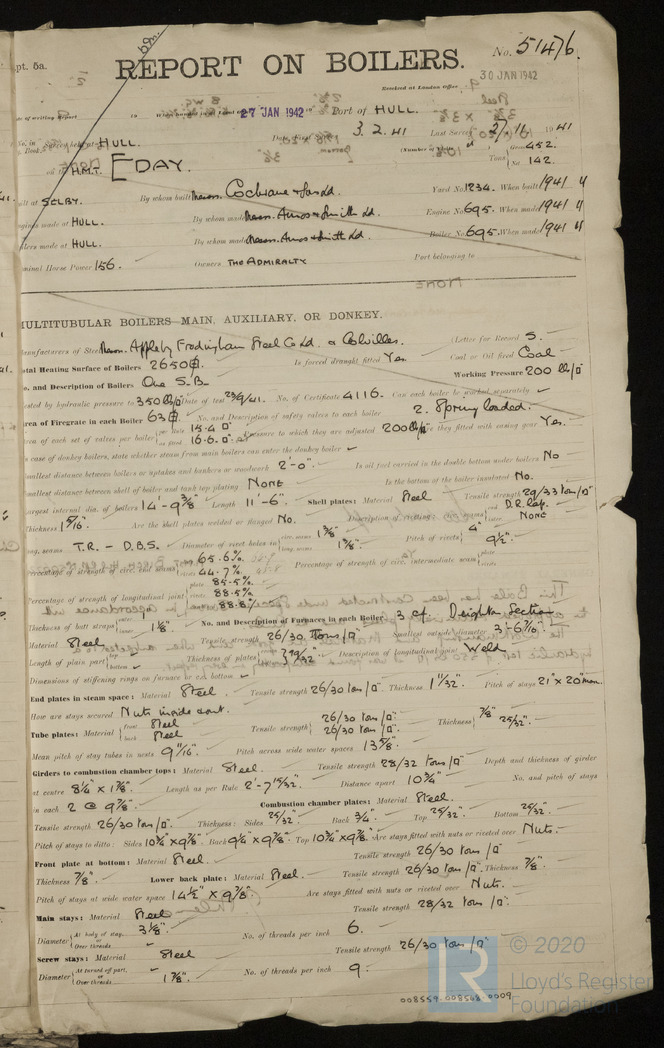 pt. 5a.
REPORT ON BOILERS.
No. 51476.
Received at London Office
30 JAN 1942
27 JAN 1942
Port of HULL.
HULL.
3. 2. 41
Last Survey 27. 11 1941
Gross 452.
Tons
142.
H.M.T. EDAY.
SELBY. By whom built Messrs. Cochrane & Sons Ld. Yard No. 1234. When built 1941
made at HULL. By whom made Messrs. Amos & Smith Ld. Engine No. 695. When made 1941
made at HULL. By whom made Messrs. Amos & Smith Ld. Boiler No. 695. When made 1941
Horse Power 156. Owners THE ADMIRALTY Port belonging to
MULTITUBULAR BOILERS MAIN, AUXILIARY, OR DONKEY.
Manufacturers of Steel Messrs. Appleby Frodingham Steel Co Ld. & Colvilles. (Letter for Record S.
Total Heating Surface of Boilers 2650 Is forced draught fitted Yes Coal or Oil fired Coal
No. and Description of Boilers One S.B. Working Pressure 200 lb/□"
Tested by hydraulic pressure to 350 lb/□" Date of test 23/9/41. No. of Certificate 4116. Can each boiler be worked separately
Area of Firegrate in each Boiler 63 No. and Description of safety valves to each boiler 2. Spring loaded.
Area of each set of valves per boiler per Rule 15.4 □" as fitted 16.6 □" Pressure to which they are adjusted 200 lb/□" Are they fitted with easing gear Yes.
In case of donkey boilers, state whether steam from main boilers can enter the donkey boiler
Smallest distance between boilers or uptakes and bunkers or woodwork 2'-0" Is oil fuel carried in the double bottom under boilers No
Smallest distance between shell of boiler and tank top plating NONE Is the bottom of the boiler insulated No.
Largest internal dia. of boilers 14'-9 3/8" Length 11'-6" Shell plates: Material Steel Tensile strength 29/33 tons/□"
Thickness 1 5/16" Are the shell plates welded or flanged No. Description of riveting: circ. seams end D.R. lap. inter. NONE
long. seams T.R. - D.B.S. Diameter of rivet holes in circ. seams 1 3/8" long. seams 1 3/8" Pitch of rivets 4" 9 1/2"
Percentage of strength of circ. end seams plate 65.6% rivets 44.7% Percentage of strength of circ. intermediate seam plate rivets
Percentage of strength of longitudinal joint plate 85.5% rivets 88.5% combined 88.8%
Thickness of butt straps outer inner 1 1/8" No. and Description of Furnaces in each Boiler 3 cf. Deighton Section
Material Steel Tensile strength 26/30 Tons/□" Smallest outside diameter 3'-6 7/16"
Length of plain part top bottom Thickness of plates 19/32" Description of longitudinal joint Weld
Dimensions of stiffening rings on furnace or c.c. bottom
End plates in steam space: Material Steel Tensile strength 26/30 tons/□" Thickness 1 11/32" Pitch of stays 21" x 20" mean.
How are stays secured Nuts inside & out.
Tube plates: Material front Steel back Steel Tensile strength 26/30 tons/□" 26/30 tons/□" Thickness 7/8" 25/32"
Mean pitch of stay tubes in nests 9 11/16" Pitch across wide water spaces 13 5/8"
Girders to combustion chamber tops: Material Steel. Tensile strength 28/32 tons/□" Depth and thickness of girder
at centre 8 1/4" x 1 7/8" Length as per Rule 2'-7 15/32" Distance apart 10 3/4" No. and pitch of stays
in each 2 @ 9 7/8" Combustion chamber plates: Material Steel.
Tensile strength 26/30 tons/□" Thickness: Sides 25/32" Back 3/4" Top 25/32" Bottom 25/32"
Pitch of stays to ditto: Sides 10 3/4" x 9 7/8" Back 9 1/4" x 9 7/8" Top 10 3/4" x 9 7/8" Are stays fitted with nuts or riveted over Nuts.
Front plate at bottom: Material Steel. Tensile strength 26/30 tons/□"
Thickness 7/8" Lower back plate: Material Steel. Tensile strength 26/30 tons/□" Thickness 7/8"
Pitch of stays at wide water space 14 1/2" x 9 7/8" Are stays fitted with nuts or riveted over Nuts.
Main stays: Material Steel Tensile strength 28/32 tons/□"
Diameter At body of stay, or Over threads 3 1/8" No. of threads per inch 6.
Screw stays: Material Steel Tensile strength 26/30 tons/□"
Diameter At turned off part, or Over threads 1 7/8" No. of threads per inch 9.
© 2020
Lloyd's Register
Foundation
008559-008568-0009